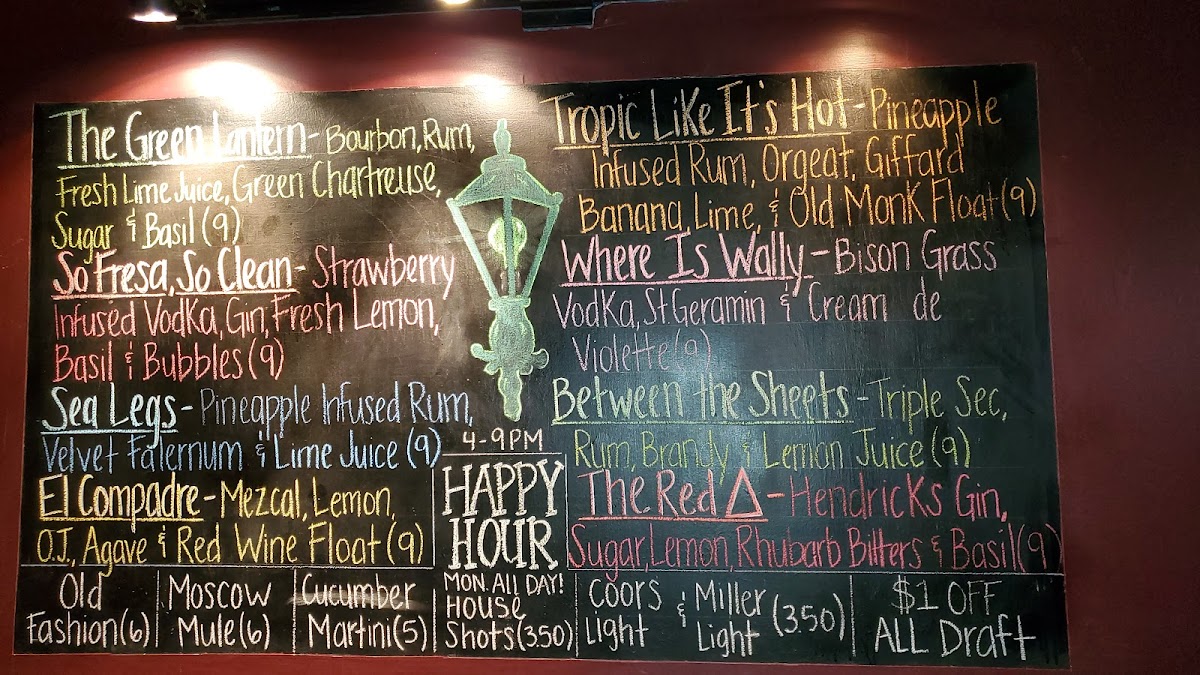 The Green Lantern - Bourbon, Rum,
Fresh Lime Juice, Green Chartreuse,
Sugar & Basil (9)
So Fresa, So Clean - Strawberry
Infused Vodka, Gin, Fresh Lemon,
Basil & Bubbles (9)
Sea Legs - Pineapple Infused Rum,
Velvet Falernum & Lime Juice (9)
El Compadre - Mezcal, Lemon,
O.J., Agave & Red Wine Float (9)
Tropic Like It's Hot - Pineapple
Infused Rum, Orgeat, Giffard
Banana, Lime, & Old Monk Float (9)
Where Is Wally - Bison Grass
Vodka, St Geramin & Cream de
Violette (9)
Between the Sheets - Triple Sec,
Rum, Brandy & Lemon Juice (9)
The Red Δ - Hendricks Gin,
Sugar, Lemon, Rhubarb Bitters & Basil (9)
4-9PM
HAPPY
HOUR
MON. ALL DAY!
HOUSE
Shots (3.50)
Old
Fashion (6)
Moscow
Mule (6)
Cucumber
Martini (5)
Coors
Light
& Miller
Light
(3.50)
$1 OFF
ALL Draft